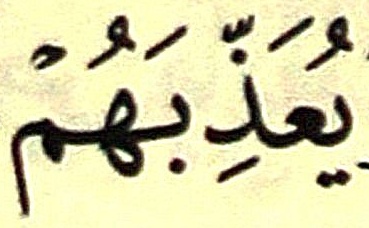 يُعَذِّبَهُمْ